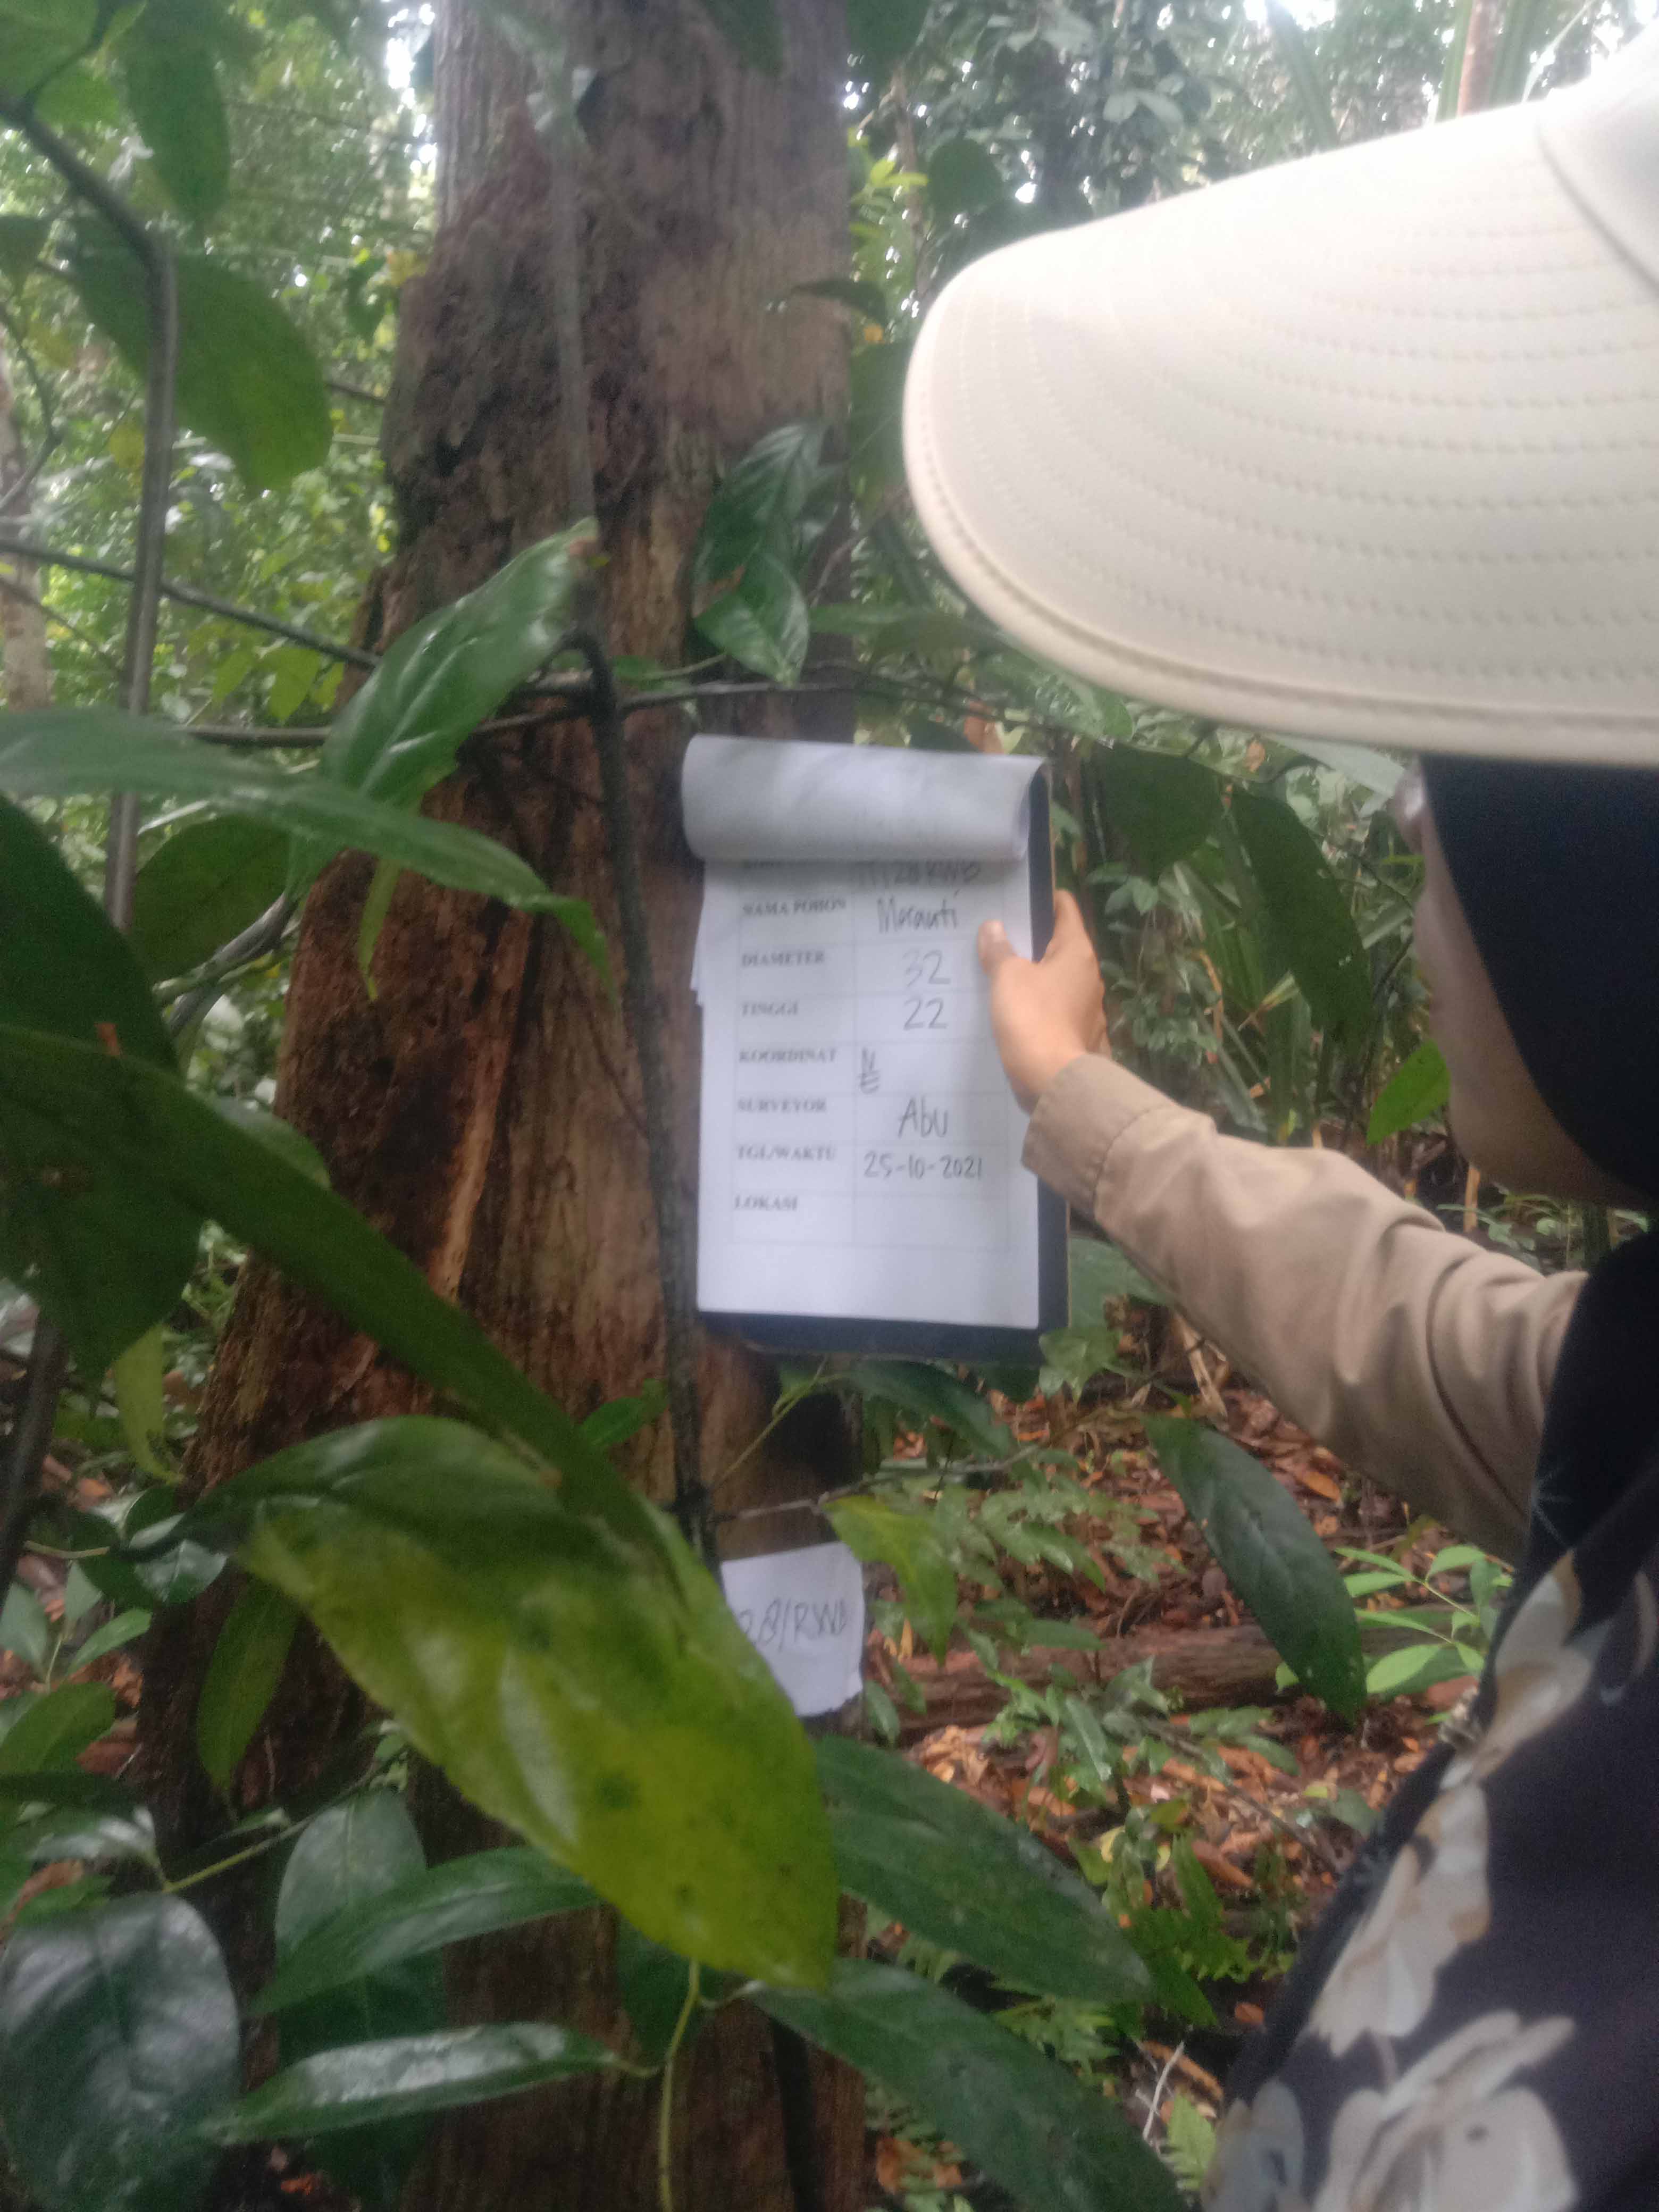 NAMA POHON Meranti
DIAMETER 32
TINGGI 22
KOORDINAT N
E
SURVEYOR Abu
TGL/WAKTU 25-10-2021
LOKASI
28/RWB